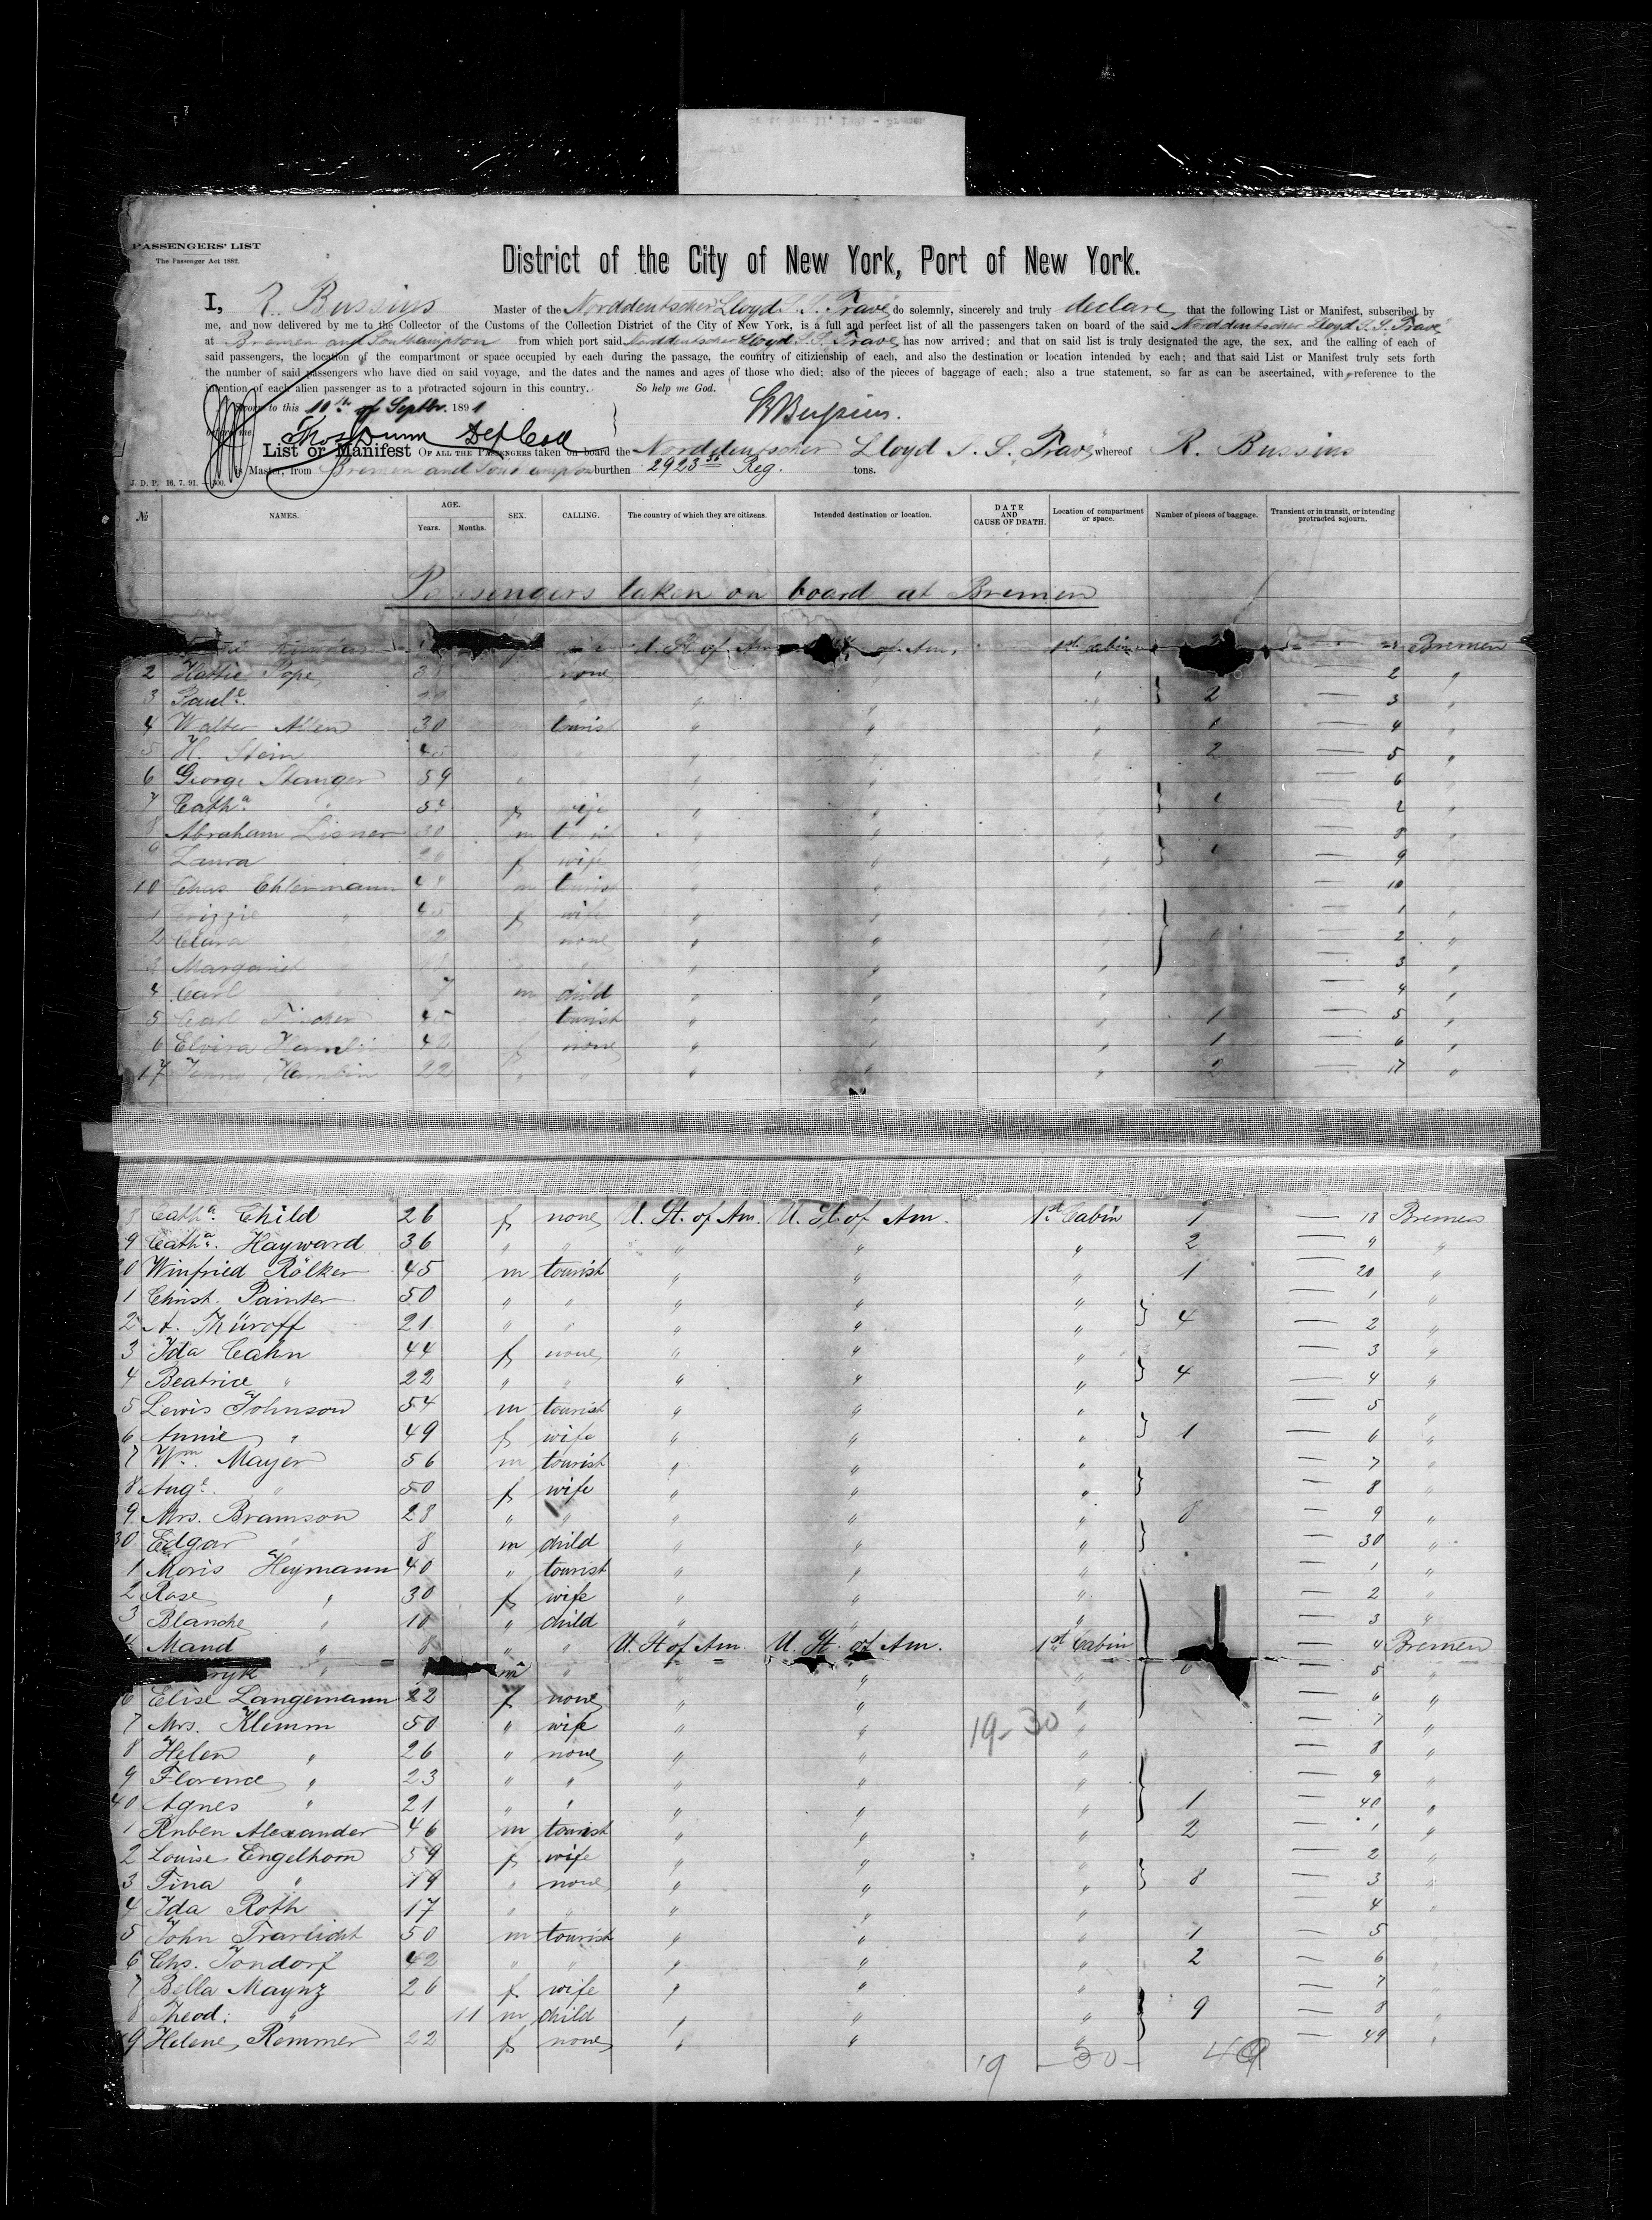 PASSENGERS' LIST
The Passenger Act 1882.
District of the City of New York, Port of New York.
I, R. Bussius Master of the Norddeutscher Lloyd S. S. "Trave" do solemnly, sincerely and truly declare that the following List or Manifest, subscribed by
me, and now delivered by me to the Collector of the Customs of the Collection District of the City of New York, is a full and perfect list of all the passengers taken on board of the said Norddeutscher Lloyd S. S. Trave
at Bremen and Southampton from which port said Norddeutscher Lloyd S. S. Trave has now arrived; and that on said list is truly designated the age, the sex, and the calling of each of
said passengers, the location of the compartment or space occupied by each during the passage, the country of citizienship of each, and also the destination or location intended by each; and that said List or Manifest truly sets forth
the number of said passengers who have died on said voyage, and the dates and the names and ages of those who died; also of the pieces of baggage of each; also a true statement, so far as can be ascertained, with reference to the
intention of each alien passenger as to a protracted sojourn in this country. So help me God.
Sworn to this 10th of Septbr. 1891 R Bussius.
before me Thos Dunn
List or Manifest OF ALL THE PASSENGERS taken on board the Norddeutscher Lloyd S. S. "Trave" whereof R. Bussius
is Master, from Bremen and Southampton burthen 2923 Reg. tons.
J. D. P. 16. 7. 91.
№ NAMES. AGE. Years. Months. SEX. CALLING. The country of which they are citizens. Intended destination or location. DATE AND CAUSE OF DEATH. Location of compartment or space. Number of pieces of baggage. Transient or in transit, or intending protracted sojourn.
Passengers taken on board at Bremen
St. of Am. of Am. 1st Cabin Bremen
2 Hattie Pope none " 2 "
3 Paule " " 2 — 3 "
4 Walter Allen 30 tourist " " " 1 — 4 "
5 H. Stein 45 " " " 2 — 5 "
6 George Stanger 59 " " " — 6
7 Catha " f wife " " "
8 Abraham Lisner 30 m " " — 8 "
9 Laura f wife " " " — 9 "
10 Chas Ehlermann m tourist " — 10
1 " 45 f wife " " " — 1 "
2 Clara none " " " — 2 "
3 Margaret " " " — 3 "
4 Carl 7 m child " " " — 4 "
5 Carl 45 tourist " " " 1 — 5 "
6 Elvira 42 f none " " " 1 — 6 "
17 Hamlin 22 " " " 2 — 17 "
8 Catha. Child 26 f none U. St. of Am. U. St. of Am. 1st Cabin 1 — 18 Bremen
9 Catha. Hayward 36 " " " " " 2 — 9 "
20 Winfried Rölker 45 m tourist " " " 1 — 20 "
1 Christ. Painter 50 " " " " " — 1 "
2 A. Thüroff 21 " " " " " 4 — 2 "
3 Ida Cahn 44 f none " " " — 3 "
4 Beatrice " 22 " " " " " 4 — 4 "
5 Lewis Johnson 54 m tourist " " " — 5 "
6 Annie " 49 f wife " " " 1 — 6 "
7 Wm. Mayer 56 m tourist " " " — 7 "
8 Auge. " 50 f wife " " " — 8 "
9 Mrs. Bramson 28 " " " " " 8 — 9 "
30 Edgar " 8 m child " " " — 30 "
1 Moris Heymann 40 " tourist " " " — 1 "
2 Rose " 30 f wife " " " — 2 "
3 Blanche " 10 " child " " " — 3 "
4 Maud " 8 " " U. St of Am. U. St. of Am. 1st Cabin — 4 Bremen
" m " " " " 6 — 5 "
6 Elise Langemann 22 f none " " " — 6 "
7 Mrs. Klemm 50 " wife " " 19-30 " — 7 "
8 Helen " 26 " none " " " — 8 "
9 Florence " 23 " " " " " — 9 "
40 Agnes " 21 " " " " " 1 — 40 "
1 Ruben Alexander 46 m tourist " " " 2 — 1 "
2 Louise Engelhorn 59 f wife " " " — 2 "
3 Tina " 19 " none " " " 8 — 3 "
4 Ida Roth 17 " " " " " — 4 "
5 John 50 m tourist " " " 1 — 5
6 Chs. Jondorf 42 " " " " " 2 — 6 "
7 Bella Maynz 26 f wife " " " — 7 "
8 Theod: " 11 m child " " " 9 — 8 "
49 Helene Remmer 22 f none " " " — 49 "
19 -30- 49